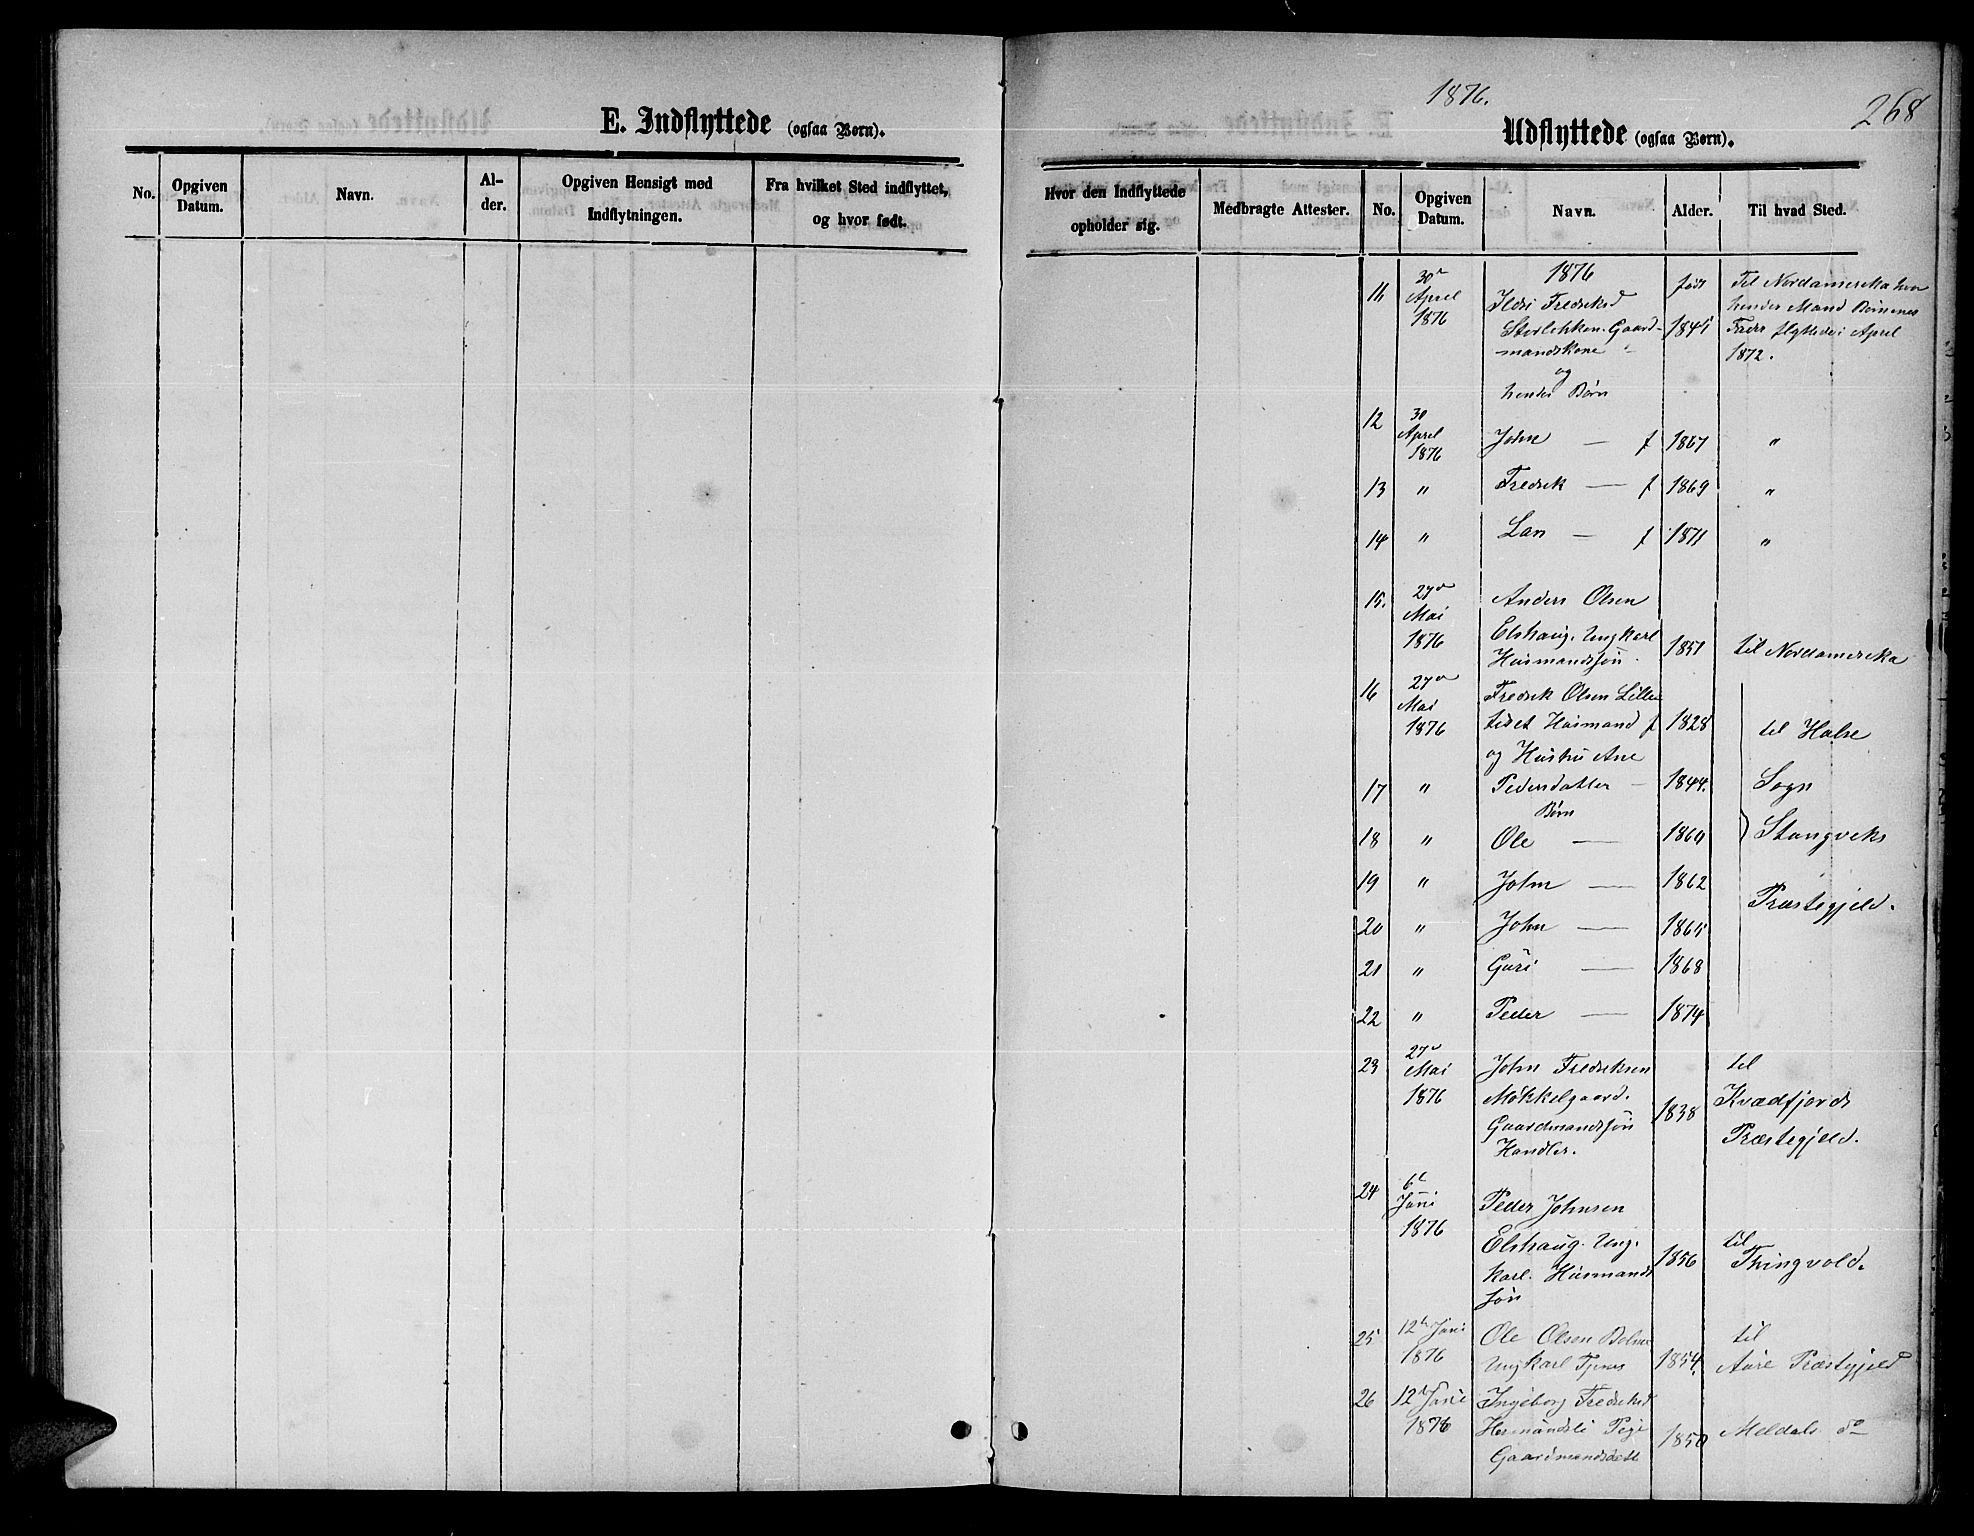 E. Indflyttede (ogsaa Børn).
No.
Opgiven Datum.
Navn.
Al-
der.
Opgiven Hensigt med
Indflytningen.
Fra hvilket Sted indflyttet,
og hvor født.
1876.
268
Udflyttede (ogsaa Børn).
Hvor den Indflyttede
opholder sig.
Medbragte Attester.
No.
Opgiven Datum.
Navn.
Alder.
Til hvad Sted.
1876
11 30 April 1876
Ildri Fredriksd
Storløkken. Gaard-
mandskone
og
hendes Børn
født 1845
Til Nordamerika hvor
hendes Mand Børnenes
Fader flyttede i April
1872.
12 30 April 1876 John — f 1867 "
13 " Fredrik — f 1869 "
14 " Lars — f 1871 "
15. 27 Mai 1876
Anders Olsen
Elshaug. Ungkarl
Husmandssøn.
1851
til Nordamerika
16 27 Mai 1876
Fredrik Olsen Lille
Husmand f 1828
og Hustru Ane
17 " Pedersdatter — 1844.
Børn
18 " Ole — 1860
19 " John — 1862
20 " John — 1865
21 " Guri — 1868
22 " Peder — 1874
til Halse
Sogn
Stangviks
Præstegjeld.
23 27 Mai 1876
John Fredriksen
Møkkelgaard.
Gaardmandssøn
Handler.
1838
til
Kvædfjords
Præstegjeld.
24 6 Juni 1876
Peder Johnsen
Elshaug. Ung-
karl. Husmands
søn
1856
til
Thingvold.
25 12 Juni 1876
Ole Olsen Bolme
Ungkarl Tjenes
1854.
til
Aure Præstegjeld
26 12 Juni 1876
Ingeborg Fredriksd
Pige
Gaardmandsdatt
1850
Meldals do